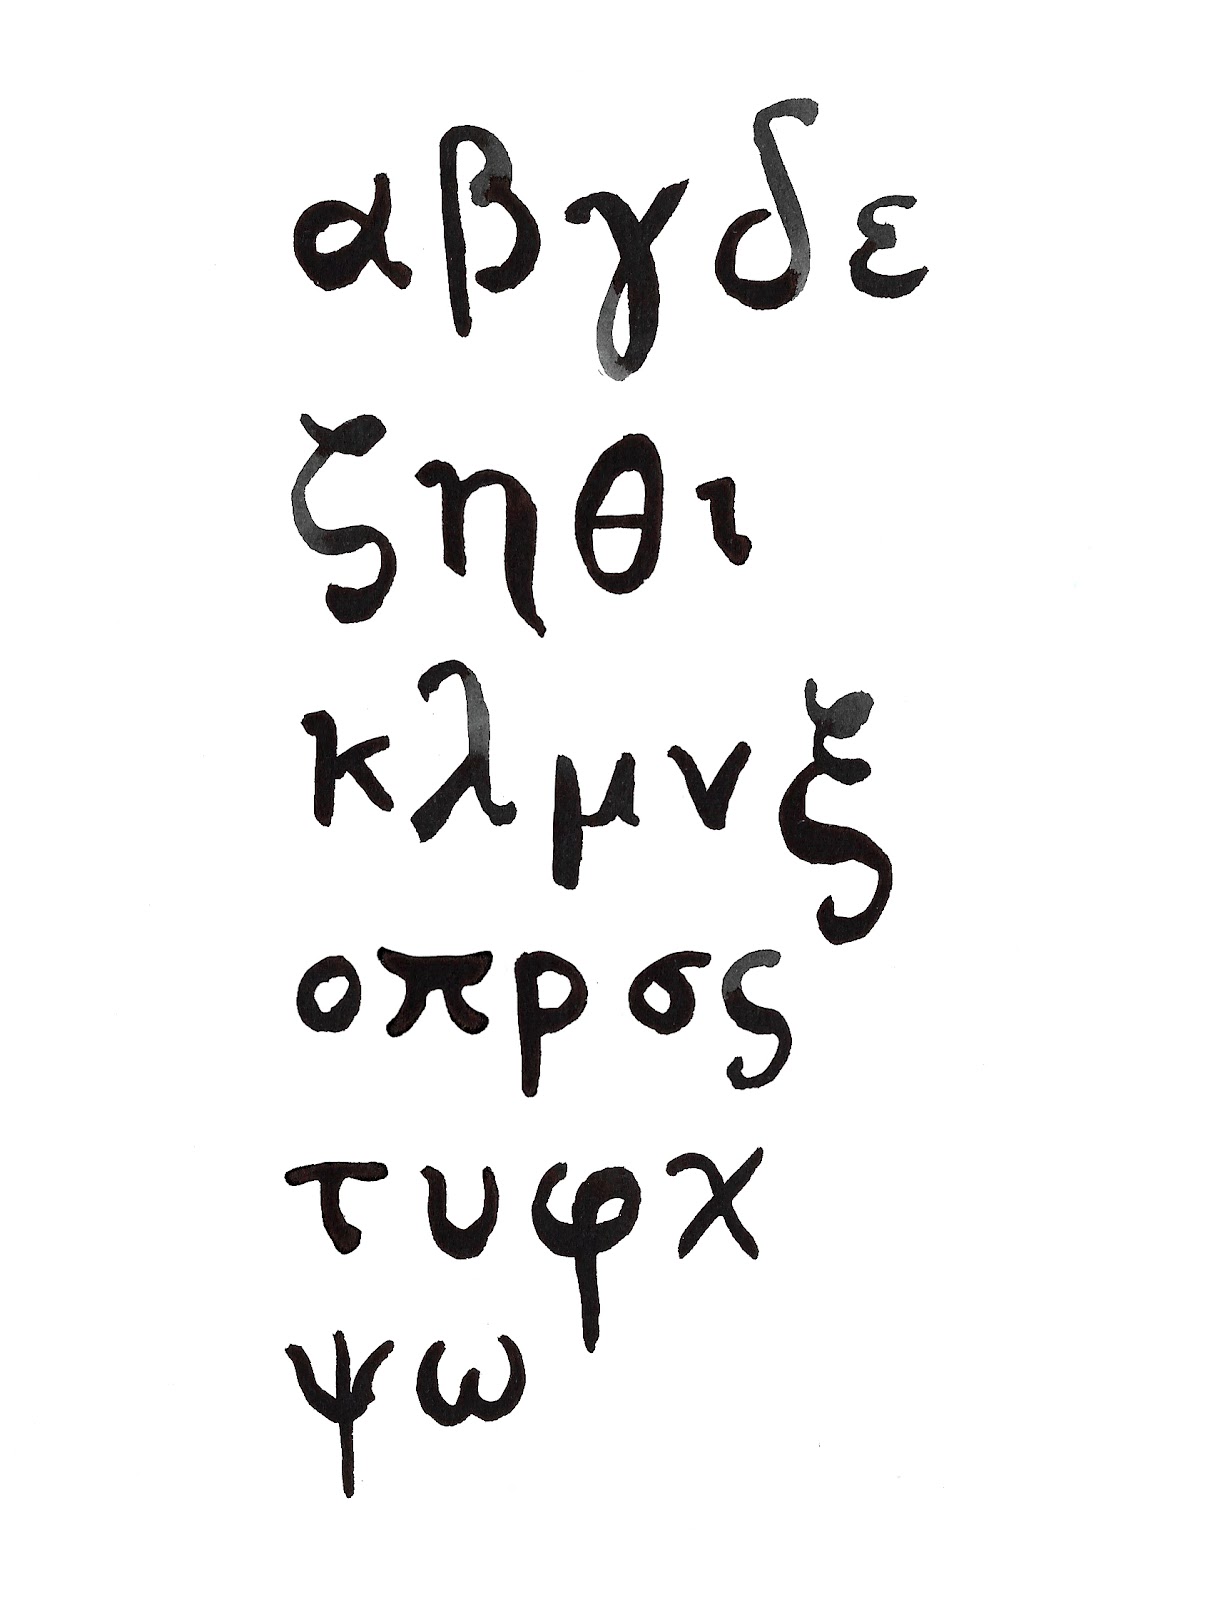 αβγδε
ζηθι
κλμνξ
οπρσς
τυφχ
ψω